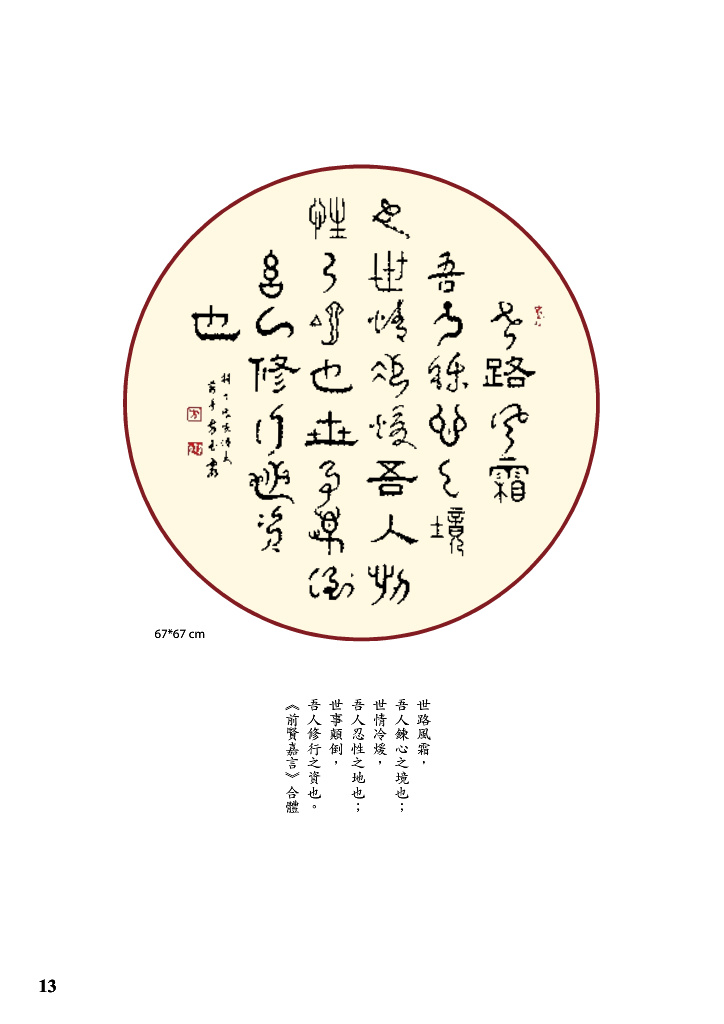 世路風霜
吾人鍊心之境
也世情冷煖吾人忍
性之地也世事顛倒
吾人修行之資
也
67*67 cm
世路風霜，
吾人鍊心之境也；
世情冷煖，
吾人忍性之地也；
世事顛倒，
吾人修行之資也。
《前賢嘉言》合體
13